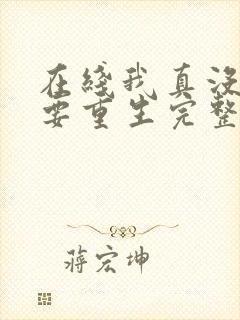 在线我真没
要重生完整
蒋宏坤